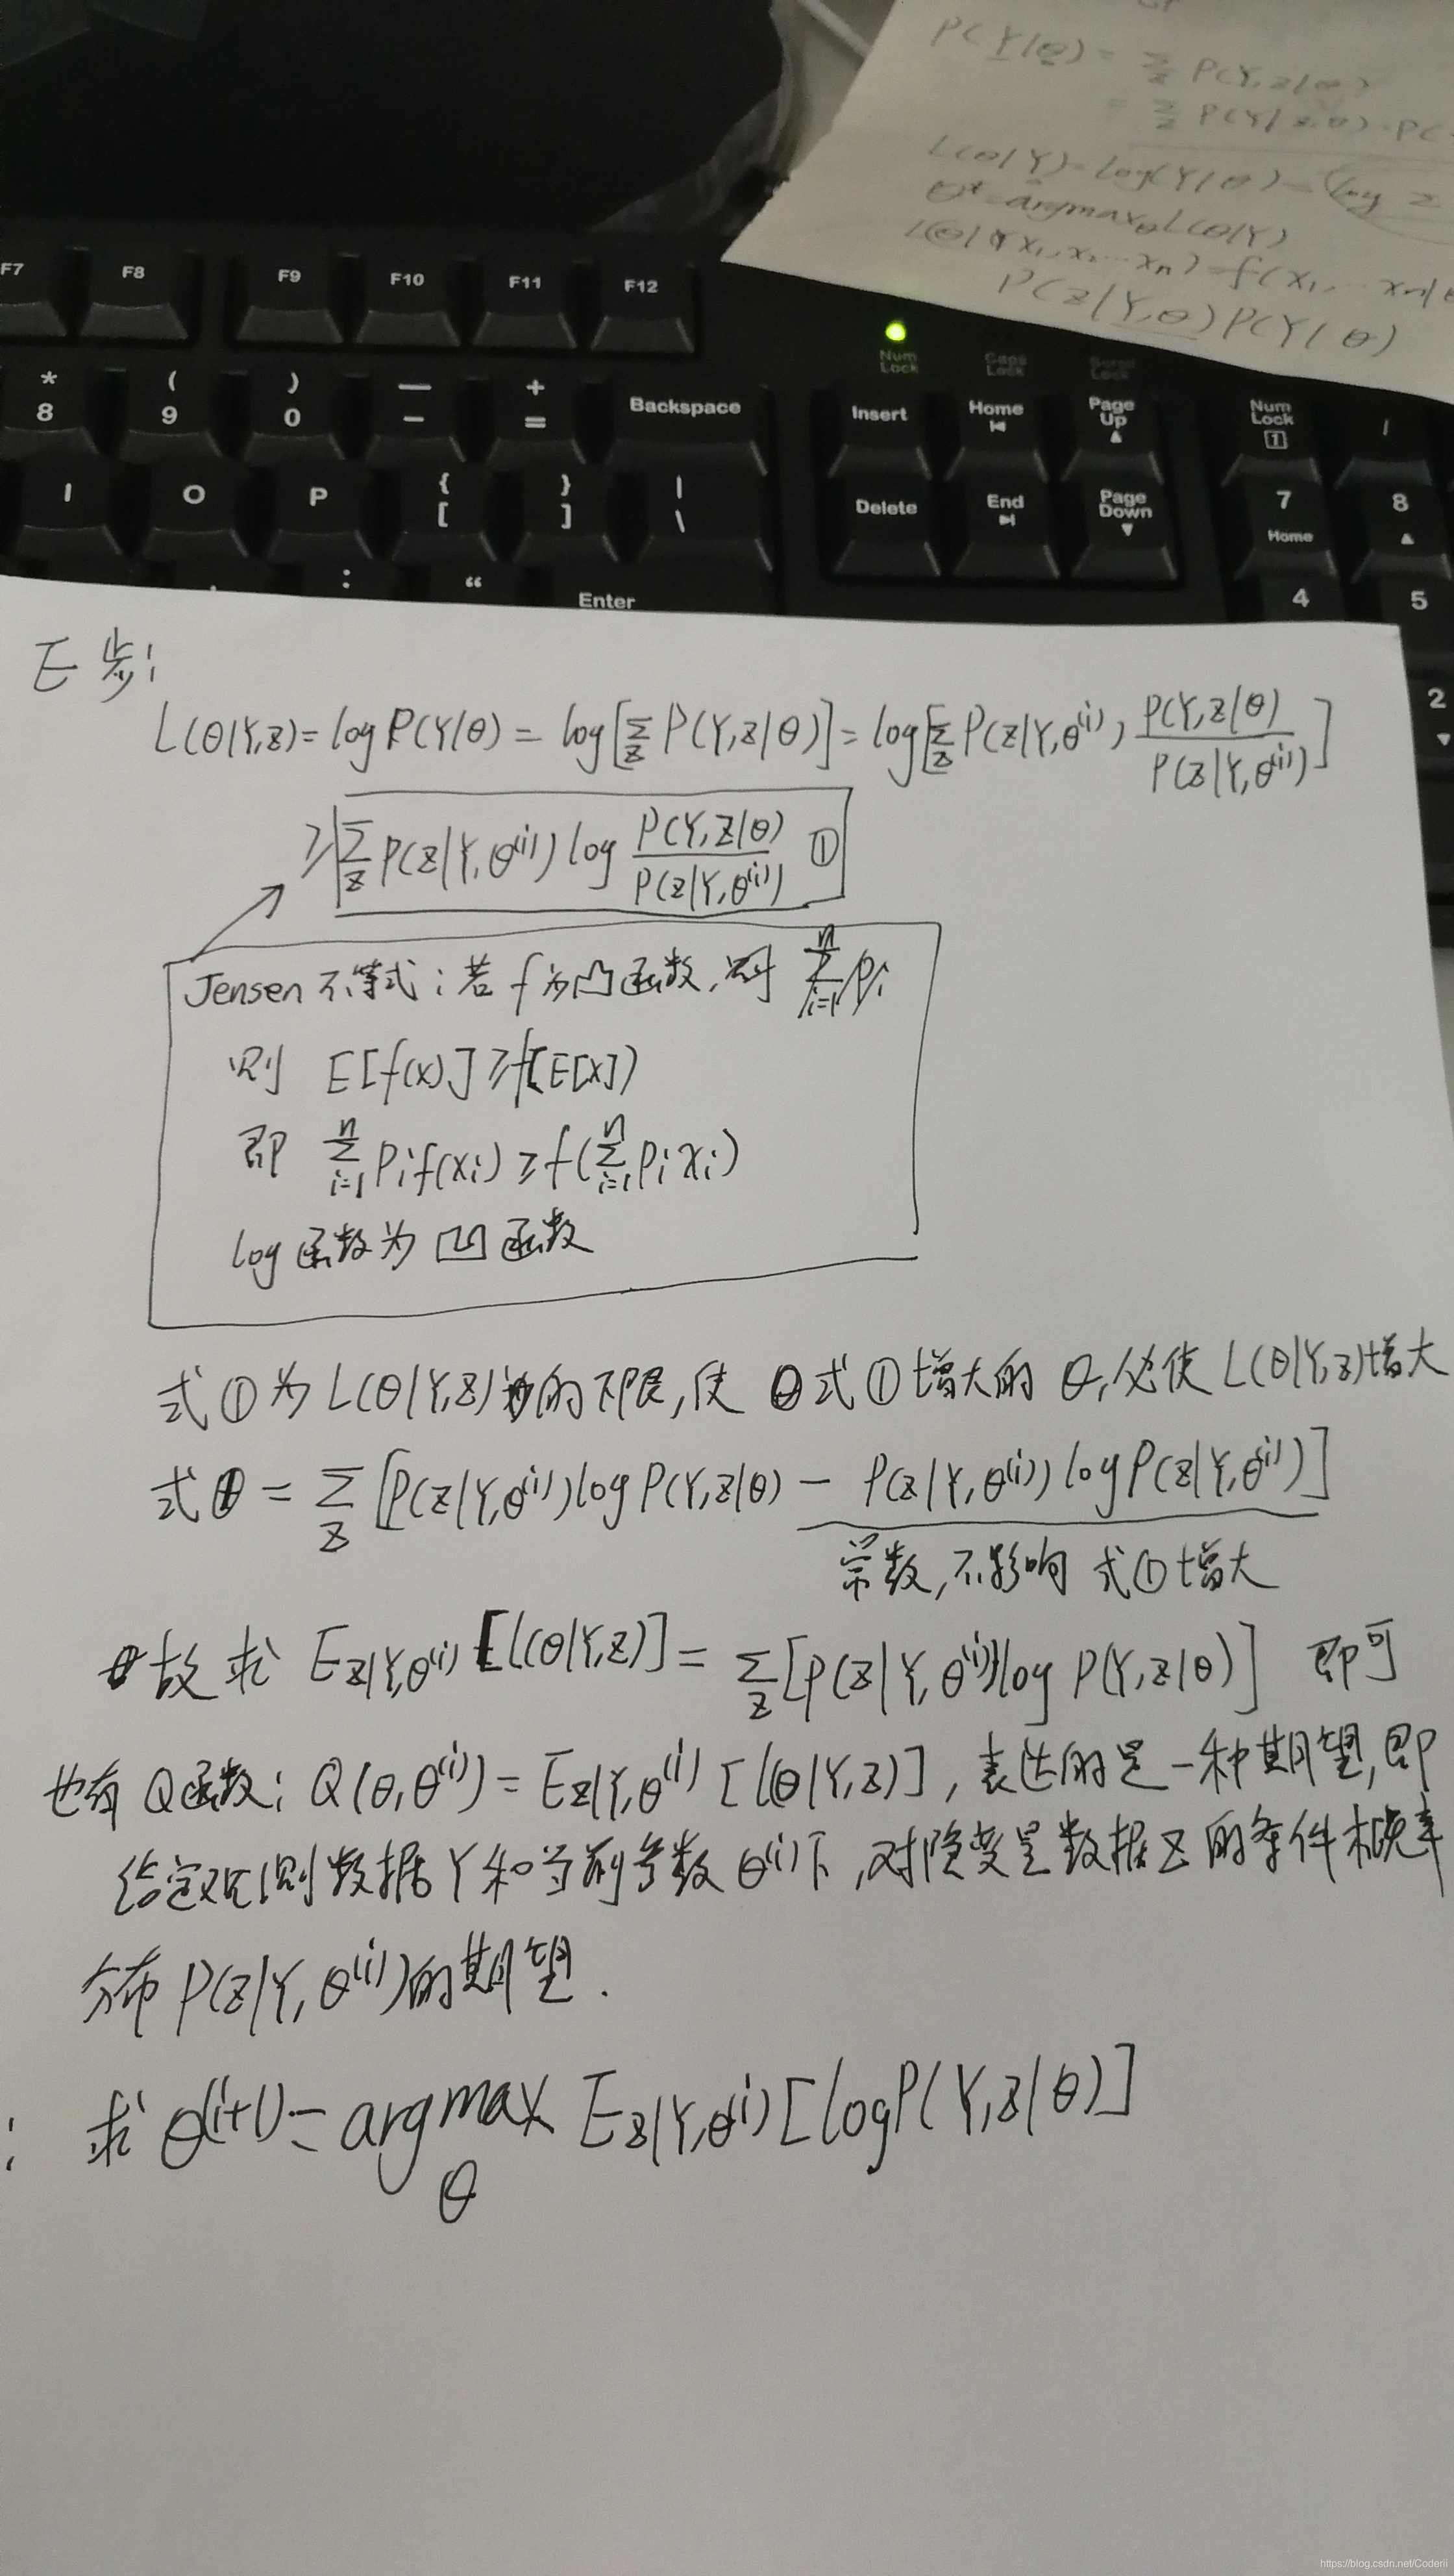 P(Y|θ) = Σz P(Y,z|θ)
= Σz P(Y|z,θ)·P(
L(θ|Y)=log(Y|θ)=(log Σ
θ*=argmaxθ L(θ|Y)
L(θ|x1,x2...xn)=f(x1,...xn|θ
P(z|Y,θ)P(Y|θ)
F7 F8 F9 F10 F11 F12
Num Lock Caps Lock Scroll Lock
* 8 ( 9 ) 0 — - + = Backspace Insert Home Page Up Num Lock 1 /
I O P { [ } ] | \ Delete End Page Down 7 Home 8
: “ Enter 4 5
2
E步:
L(θ|Y,z)=log P(Y|θ) = log[Σz P(Y,z|θ)] = log[Σz P(z|Y,θ^(i)) P(Y,z|θ) / P(z|Y,θ^(i))]
≥ Σz P(z|Y,θ^(i)) log P(Y,z|θ) / P(z|Y,θ^(i)) ①
Jensen不等式:若f为凸函数,则 Σ_{i=1}^n pi
则 E[f(x)]≥f(E[x])
即 Σ_{i=1}^n pi f(xi) ≥ f(Σ_{i=1}^n pi xi)
log函数为凹函数
式①为L(θ|Y,z)的下限,使式①增大的θ,必使L(θ|Y,z)增大
式① = Σz [P(z|Y,θ^(i)) log P(Y,z|θ) − P(z|Y,θ^(i)) log P(z|Y,θ^(i))]
常数,不影响 式①增大
故求 E_{z|Y,θ^(i)} [L(θ|Y,z)] = Σz [P(z|Y,θ^(i)) log P(Y,z|θ)] 即可
也有Q函数: Q(θ,θ^(i)) = E_{z|Y,θ^(i)} [L(θ|Y,z)], 表达的是一种期望,即
给定观测数据Y和当前参数θ^(i)下,对隐变量数据Z的条件概率
分布P(z|Y,θ^(i))的期望.
: 求 θ^(i+1) = argmax_θ E_{z|Y,θ^(i)} [log P(Y,z|θ)]
https://blog.csdn.net/Coderii